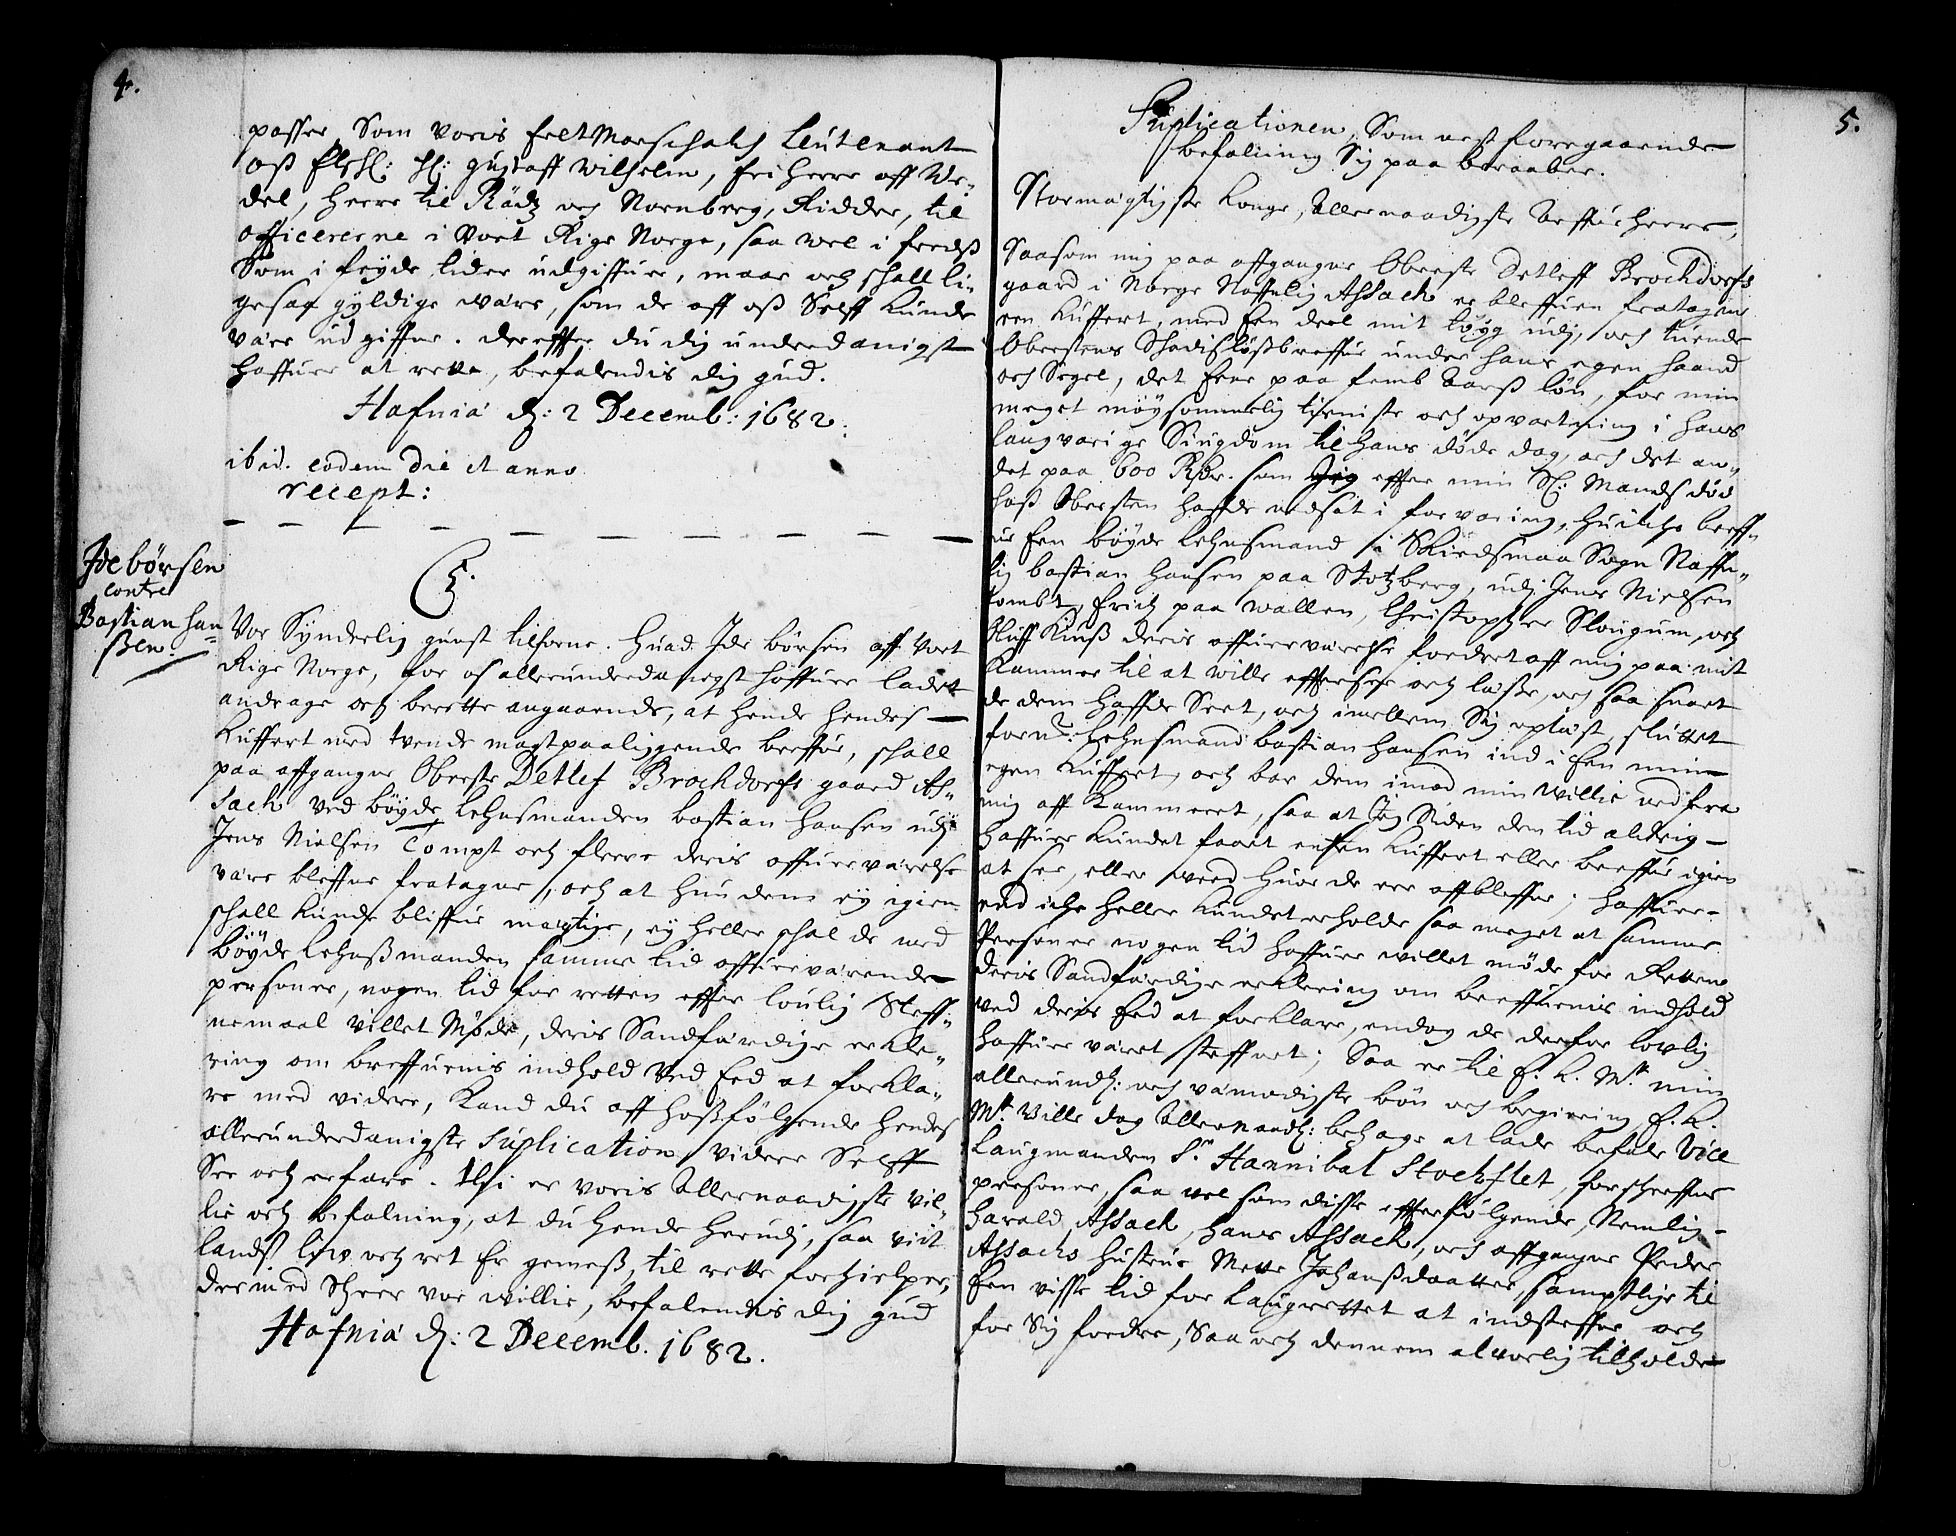 4.
passer, Som voris feltMarschalch Leutenant
oß Elshl: Hl: gustaff Wilhelm, friherre aff We-
del, herre til Rädtz och Nornberg, Ridder, til
officererne i Vort Rige Norge, saa wel i freds
Som i feyde tider udgiffuer, maae och schall li-
gesaa gyldige være, som de aff oß Selff kunde
være udgiffne. dereffter du dig underdanigst
haffuer at rette, befalendis dig gud.
Hafniæ d: 2 Decemb: 1682.
ibid. eodem die et anno
recept:
Ide børsen
contre
Bastian han
ßen.
C.
Vor Synderlig gunst tilforne. Huad Ide børsen aff Vort
Rige Norge, for os allerunderdanigst haffuer ladet
andrage och berette angaaende, at hende hendes
Kuffert med tvende magtpaaliggende breffue, schall
paa affgangne Oberste Detlef Brochdorfs gaard Ah-
sach ved bøyde Lehnsmanden bastian hansen udj
Jens Nielsen Tompt och fleere deris offuerværelse
være bleffne fratagne, och at hun dem ey igien
schall kunde bliffue mægtige, ey heller schal de med
bøyde Lehnßmanden samme tid offuerværende
personer, nogen tid for retten effter louelig Steff-
nemaal villet Møde, deris Sandfærdige erkle-
ring om breffuenis indhold ved Eed at forkla-
re med videre, kand du aff hoßfølgende hendes
allerunderdanigste Suplication videre Selff
See och erfare. Thi er voris Allernaadigste vil-
lie och befalning, at du hende herudj, saa vit
landß low och ret Er gemeß, til rette forhielper,
dermed Scheer vor willie, befalendis dig gud
Hafniæ d: 2 Decemb. 1682.
5.
Suplicationen, Som nest foregaaende
befalning Sig paa beraaber.
Stormægtigste Konge, Allernaadigste Arffue herre,
Saasom mig paa affgangne Oberste Detleff Brochdorfs
gaard i Norge Naffnlig Ahsach er bleffuen fratagen
een Kuffert, med Een deel mit tøyg udj, och tuende
Oberstens Schadisløßbreffue under hans egen haand
och Segel, det Eene paa femb Aarß løn, for min
meget møysommelig tieniste och opvartning i hans
langvarige Siugdom til hans døde dag, och det an-
det paa 600 Rdr. som Jeg effter min Sl: Mands død
hoß Obersten hafde nedsat i forvaring, huilche breff-
ue Een bøyde Lehnsmand i Skiedsmaa Sogn Naffn-
lig bastian hansen paa Stotzberg, udj Jens Nielsen
tombt, Erich paa wallen, Christopher Slougum, och
Kiuß deris offuerværelse fordret aff mig paa mit
Kammer til at wille effterse och læse, och saa snart
de dem hafde Seet, och imellem Sig oplæst, sluttet
fornt: Lehnsmand bastian hansen ind i Een min
egen Kuffert, och bar dem imod min willie ud fra
mig aff Kammeret, saa at Jeg Siden den tid aldrig
haffuer kundet faaet enten Kuffert eller breffue igien
at see, eller weed huor de ere affbleffne; haffuer
end iche heller kundet erholde saa meget at samme
Personer nogen tid haffuer willet møde for Retten
deris Sandfærdige erklering om breffuenis indhold
ved deris Eed at forklare, endog de derfor lovlig
haffuer været steffnet; Saa er til E. K. Mtt min
allerundl: och ydmygste bøn och begiering E. K.
Mtt Ville dog Allernaadl: behage at lade befale Vice
Laugmanden Sr Hannibal Stochflet, forscreffne
personer, saa vel som disse effterfølgende, Nemlig
harald Ahsach, hans Ahsach, och affgangne Peder
Ahsachs hustrue Mette Johanßdaatter, samptlige til
Een visse tid for Laugrettet at indsteffne och
for Sig fordre, Saa och dennem alvorlig tilholde